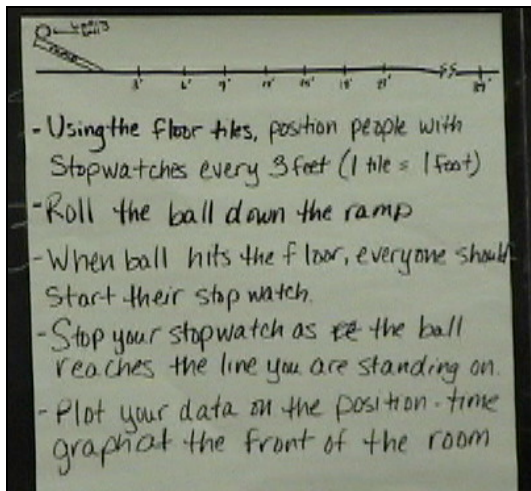 ramp
3' 6' 9' 12' 15' 18' 21'
- Using the floor tiles, position people with
Stopwatches every 3 feet (1 tile = 1 foot)
- Roll the ball down the ramp
- When ball hits the floor, everyone should
start their stop watch.
- Stop your stopwatch as the ball
reaches the line you are standing on.
- Plot your data on the position-time
graph at the front of the room